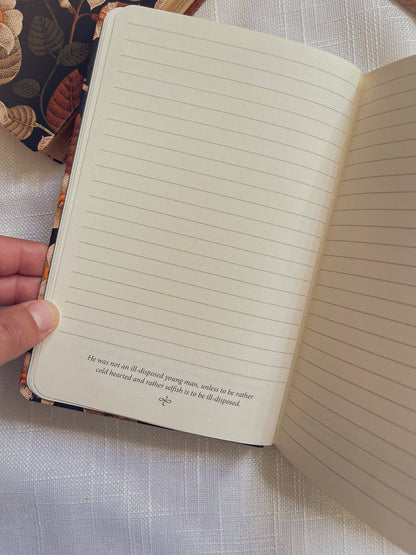 He was not an ill-disposed young man, unless to be rather
cold hearted and rather selfish is to be ill-disposed.